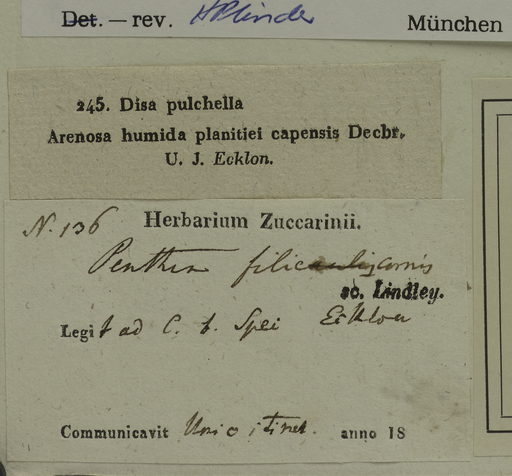 Det. — rev. HPLinder München
245. Disa pulchella
Arenosa humida planitiei capensis Decbr.
U. J. Ecklon.
N. 136 Herbarium Zuccarinii.
Penthea filicornis
sc. Lindley.
Legit ad C. b. Spei Ecklon
Communicavit Unio itiner. anno 18